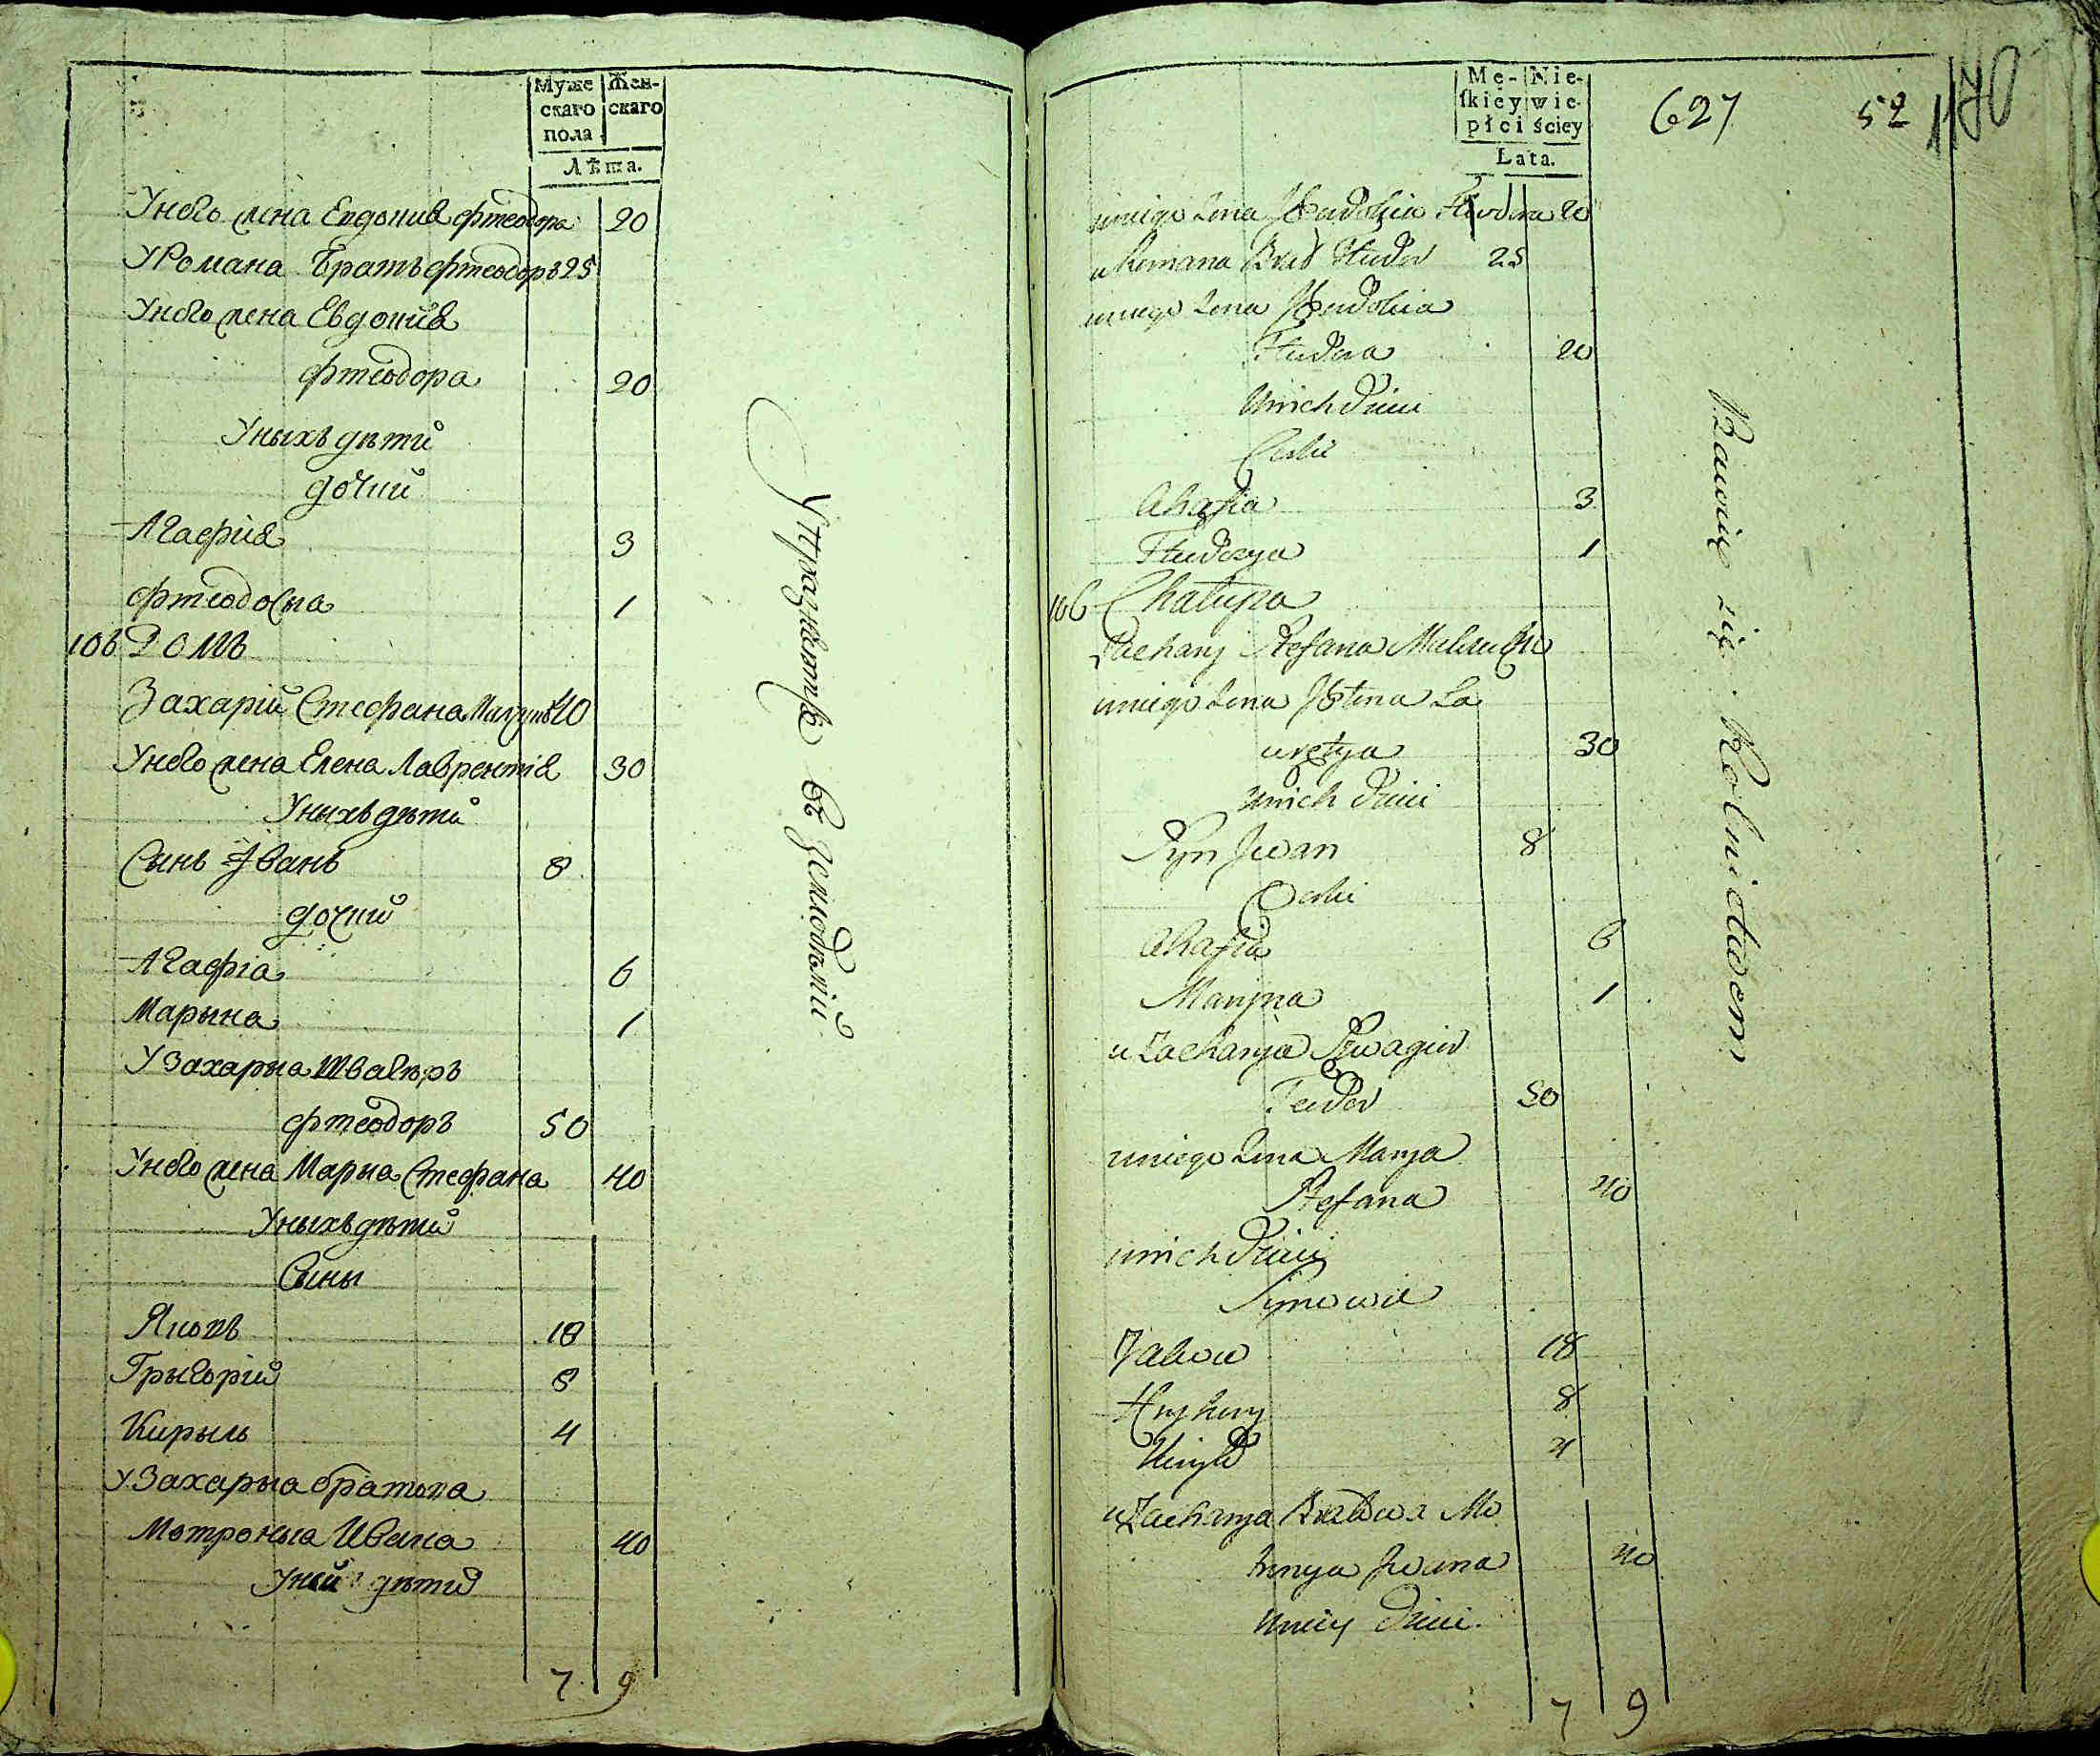 Муже
скаго
пола
Жен-
скаго
Лѣта.
Унего жена Евдокия Фтеодора 20
У Романа Братъ Фтеодоръ 25
Унего жена Евдокия
Фтеодора 20
Уныхъ дѣти
дочки
Агафия 3
Фтеодосыа 1
106 Домъ
Захарій Стефана 40
Унего жена Елена Лаврентія 30
Уныхъ дѣти
Сынъ Іванъ 8
дочки
Агафіа 6
Марына 1
У Захарыа Швагѣръ
Фтеодоръ 50
Унего жена Марыа Стефана 40
Уныхъ дѣти
Сыны
Яковъ 18
Грыгорій 8
Кирыль 4
у Захарыа братова
Мотроныа Ивана 40
Уней дѣти
7 9
Упражняются въ земледѣліи
Mę-
skiey
płci
Nie-
wie-
ściey
Lata.
627
52
170
uniego żona Jewdokia Fteodora 20
u Romana Brat Fteodor 25
uniego żona Jewdokia
Fteodora 20
unich dzieci
Corki
Ahafia 3
Fteodozya 1
106 Chałupa
Zachary Stefana
uniego żona Helena La
urętya 30
unich dzieci
Syn Jwan 8
Corki
Ahafia 6
Maryna 1
u Zacharya Szwagier
Teodor 50
uniego żona Marya
Stefana 40
unich dzieci
Synowie
Jakow 18
Hryhory 8
Kiryło 4
u Zacharya Bratowa Mo
tronya Jwana 40
uniey dzieci.
7 9
Bawią się Rolnictwem